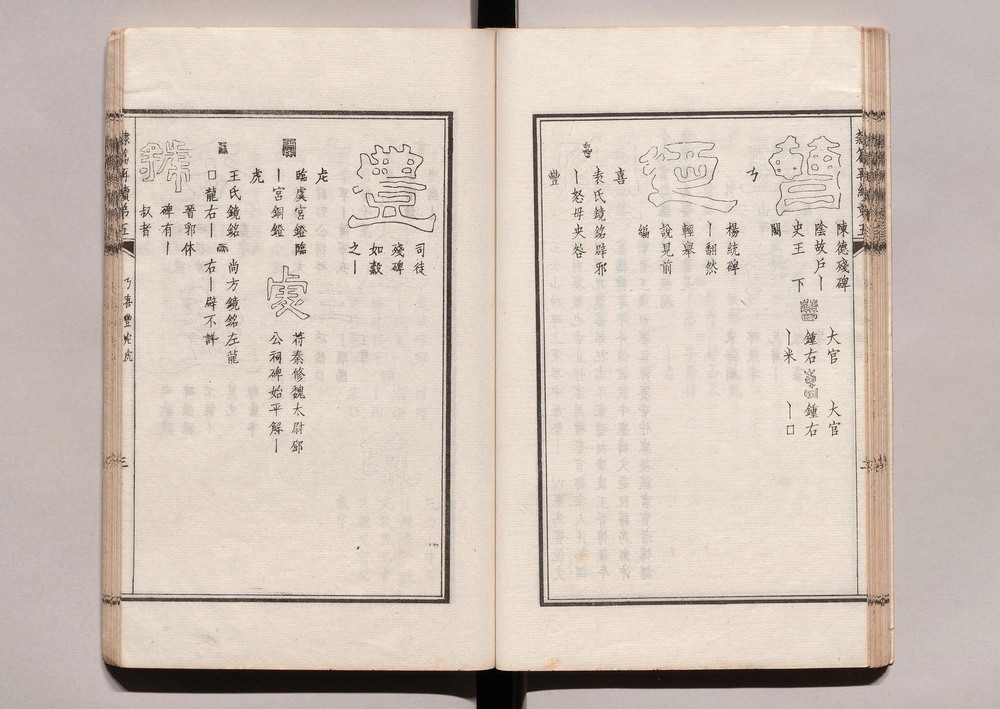 隸篇再續第五
陳德殘碑
陰故戶丨
史王　下
闕
大官
鍾右
丨米
大官
鍾右
丨口
丂
楊統碑
丨翻然
輕舉
說見前
編
喜
袁氏鏡銘辟邪
丨怒母央咎
豐
豐
司徒
殘碑
如數
之丨
虍
臨虞宮鐙臨
丨宮銅鐙
苻秦修魏太尉鄧
公祠碑始平解丨
虎
王氏鏡銘
口龍右丨
尚方鏡銘左龍
右丨辟不詳
晉郛休
碑有丨
叔者
隸篇再續第五
丂喜豐虍虎
三